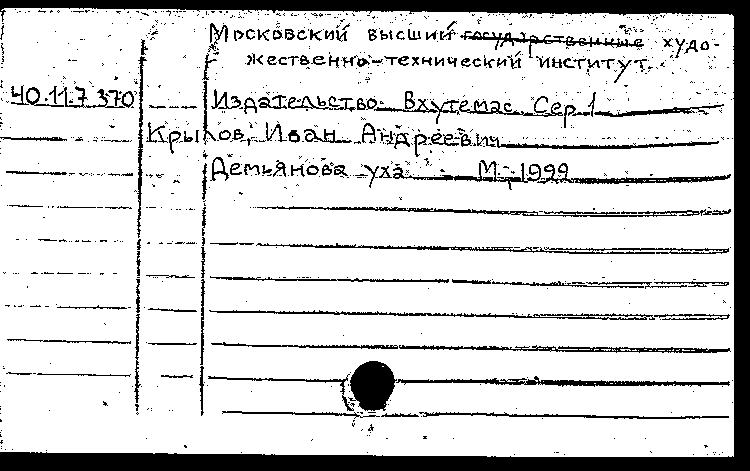 Московский высший государственные худо-
жественно-технический институт.
40.11.7.370 Издательство Вхутемас. Сер.1
Крылов, Иван Андреевич
Демьянова уха М., 1999